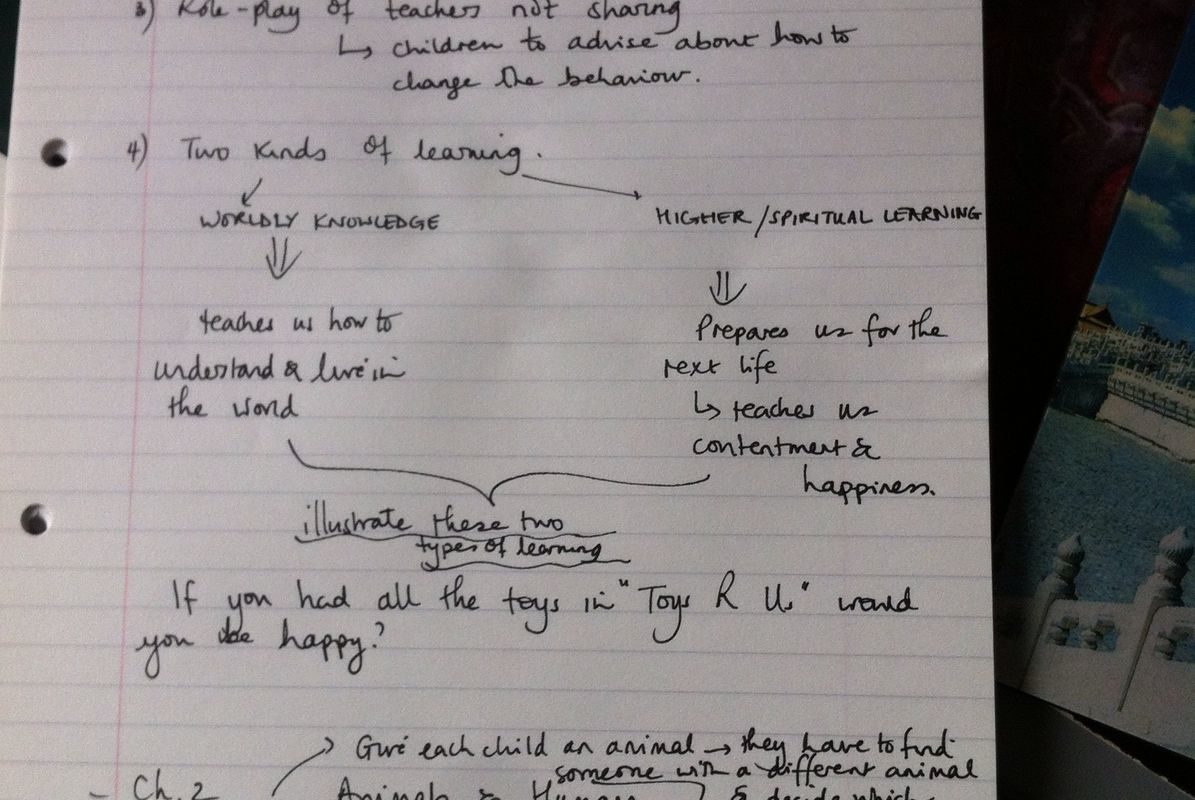 3) Role-play of teachers not sharing
↳ children to advise about how to
change the behaviour.
4) Two kinds of learning.
WORLDLY KNOWLEDGE
HIGHER/SPIRITUAL LEARNING
teaches us how to
understand & live in
the world
Prepares us for the
next life
↳ teaches us
contentment &
happiness.
illustrate these two
types of learning
If you had all the toys in "Toys R Us" would
you be happy?
Give each child an animal → they have to find
someone with a different animal
- Ch. 2
Animals & Human
& decide which